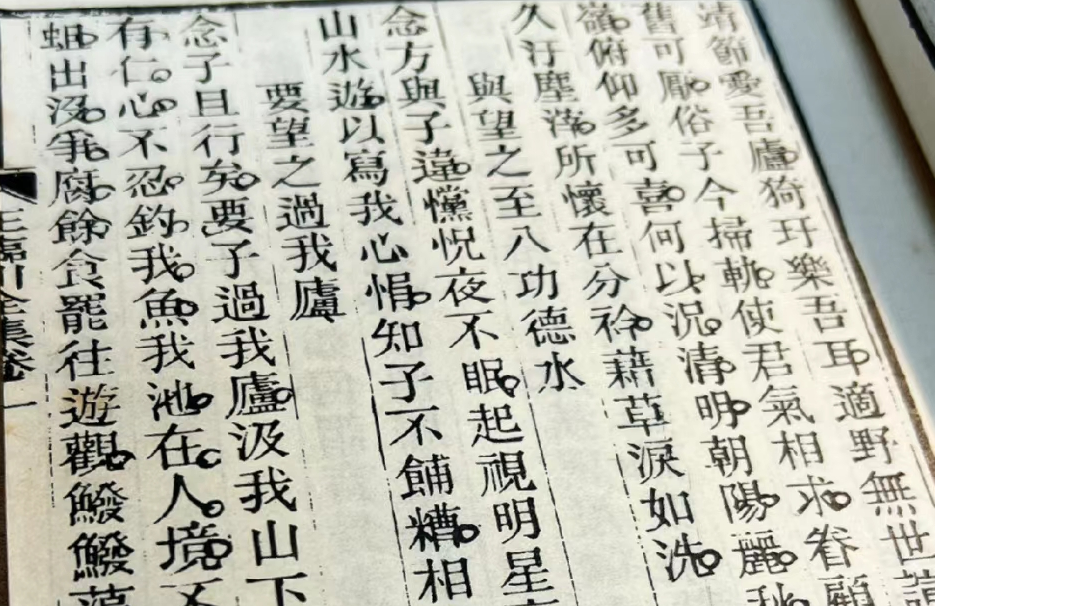 靖節愛吾廬猗玗樂吾耳適野無世
舊可厭俗子今掃軌使君氣相求眷顧
嶺俯仰多可喜何以況清明朝陽麗秋
久汙塵滓所懷在分衿藉草淚如洗
與望之至八功德水
念方與子違戃怳夜不眠起視明星
山水遊以寫我心悁知子不餔糟相
要望之過我廬
念子且行矣要子過我廬汲我山下
有仁心不忍釣我魚我池在人境不
蛆出沒爭腐餘食罷往遊觀鱍鱍藻
王臨川全集卷一